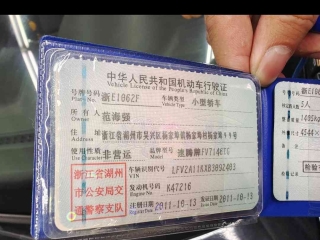 中华人民共和国机动车行驶证
Vehicle License of the People's Republic of China
号牌号码 浙E1062F 车辆类型 小型轿车
Plate No. Vehicle Type
所有人 范海强
Owner
住址 浙江省湖州市吴兴区杨家埠镇杨家埠村杨家埠99号
Address
使用性质 非营运 品牌型号 速腾牌FV7146TG
Use Character Model
浙江省湖州
市公安局交
通警察支队
车辆识别代号 LFV2A11KXB3092403
VIN
发动机号码 K47216
Engine No.
注册日期 2011-10-13 发证日期 2011-10-13
Register Date Issue Date
浙E1062F
5人